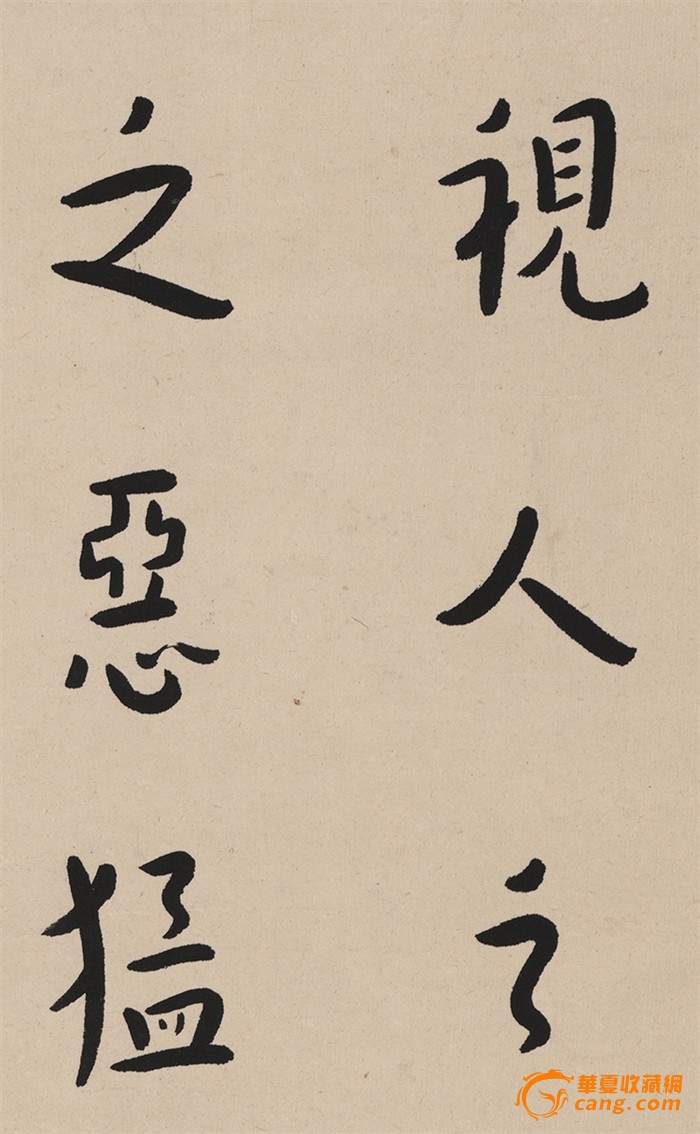 視人之
之惡猛
華夏收藏網
cang.com